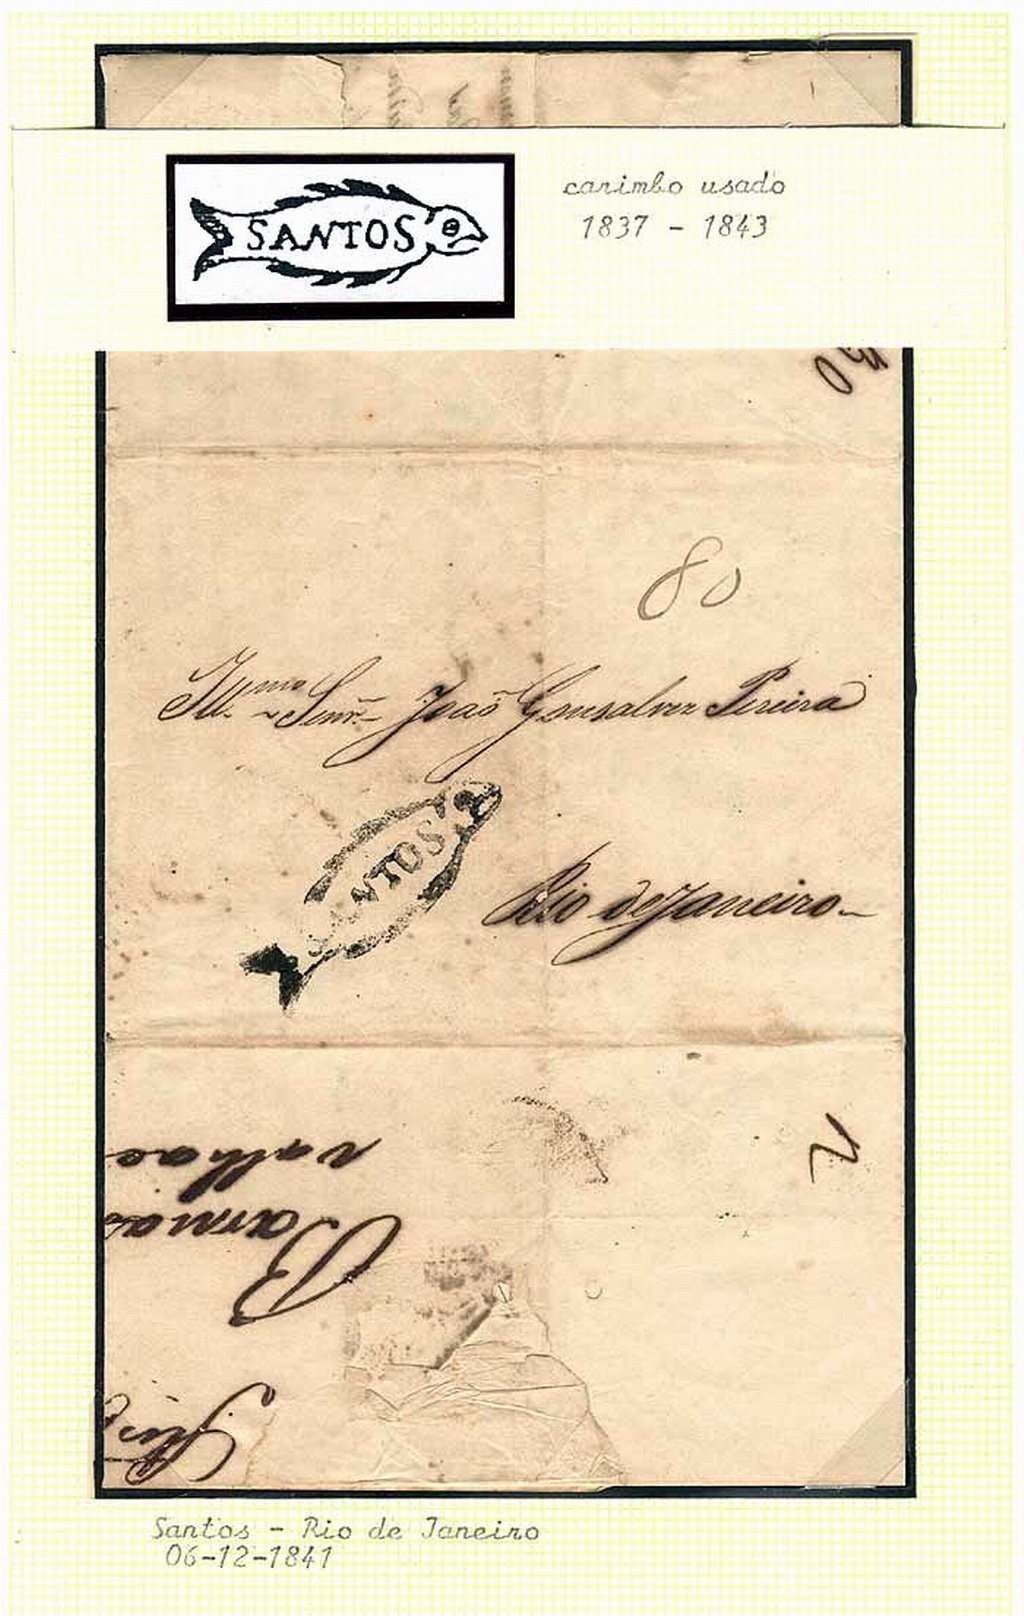 SANTOS
carimbo usado
1837 - 1843
80
Ill.mo Senr. João Gonsalvez Pereira
SANTOS
Rio de Janeiro
Santos - Rio de Janeiro
06-12-1841